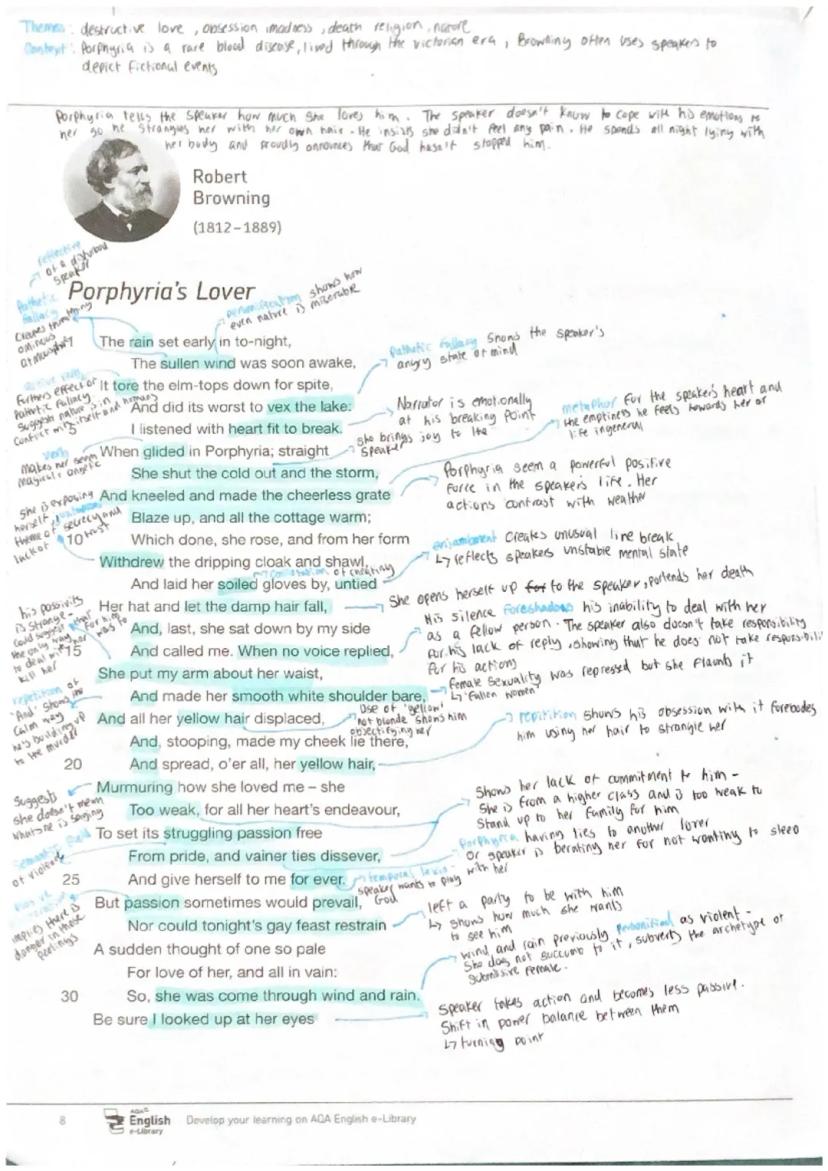 Themes: destructive love, obsession, madness, death, religion, nature
Context: Porphyria is a rare blood disease, lived through the victorian era, Browning often uses speakers to
depict fictional events
Porphyria tells the speaker how much she loves him. The speaker doesn't know to cope with his emotions to
her so he strangles her with her own hair. He insists she didn't feel any pain. He spends all night lying with
her body and proudly announces that God hasn't stopped him.
Robert
Browning
(1812–1889)
reflective
of a disturbed
speaker
Porphyria's Lover
Pathetic
fallacy
ominous
atmosphere
personification shows how
even nature is miserable
1 The rain set early in to-night,
The sullen wind was soon awake,
Pathetic fallacy shows the speaker's
angry state of mind
It tore the elm-tops down for spite,
Furthers effect of
Pathetic fallacy
suggests nature is in
conflict with itself and humans
And did its worst to vex the lake:
5 I listened with heart fit to break.
Narrator is emotionally
at his breaking point
metaphor for the speaker's heart and
the emptiness he feels towards her or
life in general
When glided in Porphyria; straight
she brings joy to the
speaker
verb
makes her seem
magical + angelic
She shut the cold out and the storm,
And kneeled and made the cheerless grate
Porphyria seem a powerful positive
force in the speaker's life. Her
actions contrast with weather
Blaze up, and all the cottage warm;
10 Which done, she rose, and from her form
she is exposing
herself,
theme of secrecy and
lack of trust
Withdrew the dripping cloak and shawl,
enjambment creates unusual line break
↳ reflects speakers unstable mental state
And laid her soiled gloves by, untied
connotation of cheating
Her hat and let the damp hair fall,
She opens herself up for to the speaker, portends her death
And, last, she sat down by my side
15 And called me. When no voice replied,
His silence foreshadows his inability to deal with her
as a fellow person. The speaker also doesn't take responsibility
for his lack of reply, showing that he does not take responsibili
for his actions
his passivity
is strange -
could suggest that
the only way for him
to deal with her was to
kill her
She put my arm about her waist,
And made her smooth white shoulder bare,
female sexuality was repressed but she flaunts it
↳ 'Fallen women'
And all her yellow hair displaced,
Use of 'yellow'
not blonde shows him
objectifying her
repetition of
'And' shows the
calm way
he's building up
to the murder
And, stooping, made my cheek lie there,
20 And spread, o'er all, her yellow hair,
repitition shows his obsession with it forebodes
him using her hair to strangle her
Murmuring how she loved me – she
Suggests
she doesn't mean
what she is saying
Too weak, for all her heart's endeavour,
Shows her lack of commitment to him -
She is from a higher class and is too weak to
stand up to her family for him
To set its struggling passion free
semantic field
of violence
From pride, and vainer ties dissever,
Porphyria having ties to another lover
or speaker is berating her for not wanting to sleep
with her
25 And give herself to me for ever.
temporal lexis -
speaker wants to play
God
But passion sometimes would prevail,
implies there is
danger in those
feelings
Nor could tonight's gay feast restrain
left a party to be with him
↳ shows how much she wants
to see him
A sudden thought of one so pale
For love of her, and all in vain:
wind and rain previously personified as violent -
She does not succumb to it, subverts the archetype of
submissive female.
30 So, she was come through wind and rain.
Be sure I looked up at her eyes
speaker takes action and becomes less passive.
Shift in power balance between them
↳ turning point
8
AQA
English
e-Library
Develop your learning on AQA English e-Library